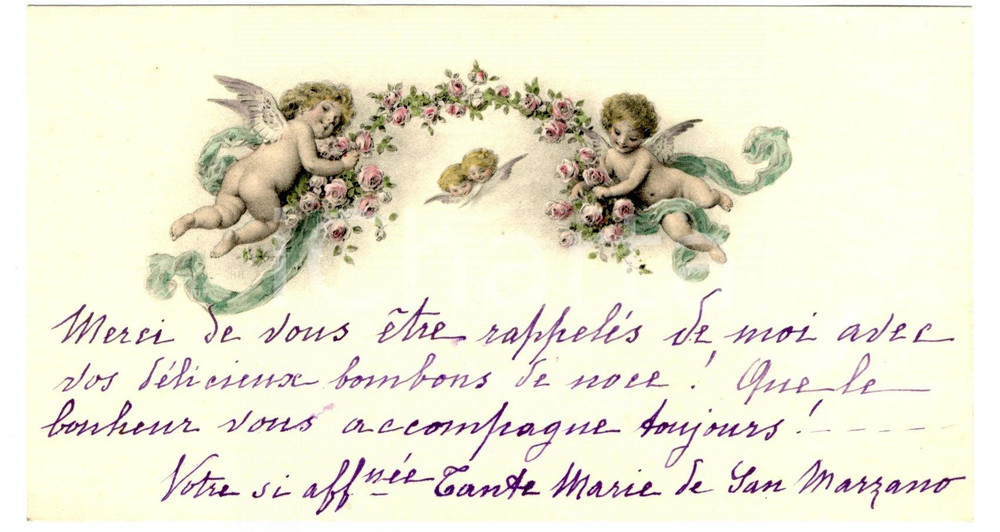 Merci de vous être rappelés de moi avec
vos délicieux bombons de noce ! Que le
bonheur vous accompagne toujours !
Votre si affnée Tante Marie de San Marzano